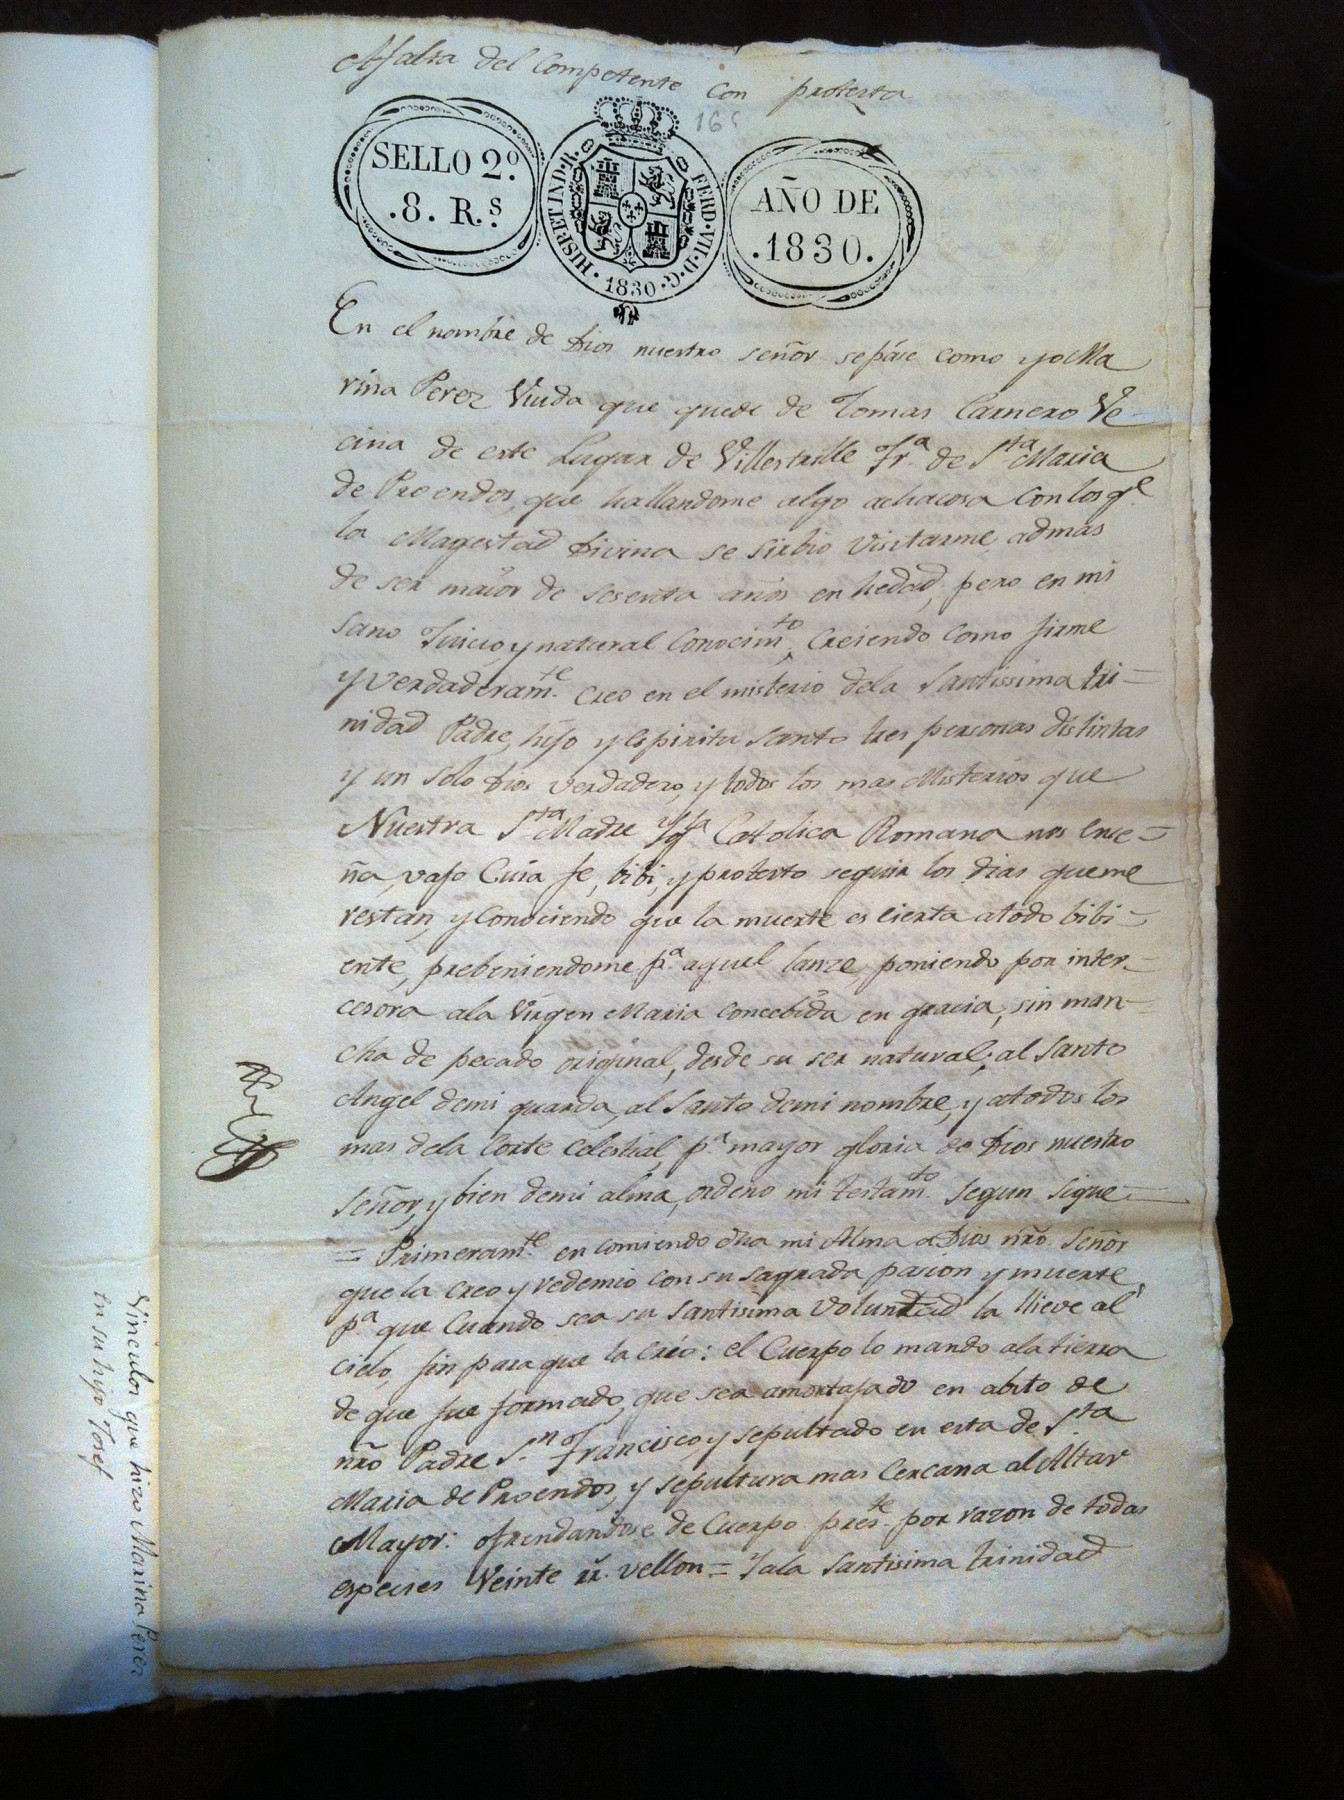 A falta del Competente con protesta
165
SELLO 2º.
.8. R.s
HISP.ET IND.R. FERD.VII.D.G. 1830
AÑO DE
.1830.
En el nombre de Dios nuestro señor sepáse como yo Ma
rina Perez Viuda que quede de Tomas Carnero Ve-
cina de este Lugar de Villestrille Fra. de Sta Maria
de Proendos, que hallandome algo achacosa con los qe.
la Magestad Divina se sirbio visitarme, admas
de ser maior de sesenta años en hedad, pero en mi
sano Juicio y natural Conocimto. Creiendo como firme
y verdaderamte. creo en el misterio dela Santissima tri=
nidad Padre, hijo y Espiritu Santo tres personas distintas
y un solo Dios verdadero, y todos los mas Misterios que
Nuestra Sta Madre Yga. Catolica Romana nos ense=
ña, vajo Cuia fe, bibi, y protesto seguir los dias que me
restan, y Conociendo que la muerte es cierta a todo bibi=
ente, prebeniendome pa. aquel lanze, poniendo por inter=
cesora ala Virgen Maria concebida en gracia, sin man=
cha de pecado original, desde su ser natural; al Santo
Angel demi guarda, al Santo demi nombre, y atodos los
mas dela Corte Celestial pa. mayor gloria de Dios nuestro
señor, y bien demi alma, ordeno mi testamto. segun sigue=
= Primeramte. encomiendo dha mi Alma a Dios nro. Señor
que la creo y redemio con su sagrada pasion y muerte,
pa. que Cuando sea su santisima Voluntad la llieve al
cielo, fin para que la crió: el Cuerpo lo mando ala tierra
de que fue formado, que sea amortajado en abito de
nro Padre Sn. Francisco, y sepultado en esta de Sta.
Maria de Proendos, y sepultura mas Cercana al Altar
Mayor: ofrendandose de Cuerpo preste. por razon de todas
especies Veinte rr. vellon = Yala Santisima trinidad
Vinculos que hizo Marina Perez
en su hijo Josef